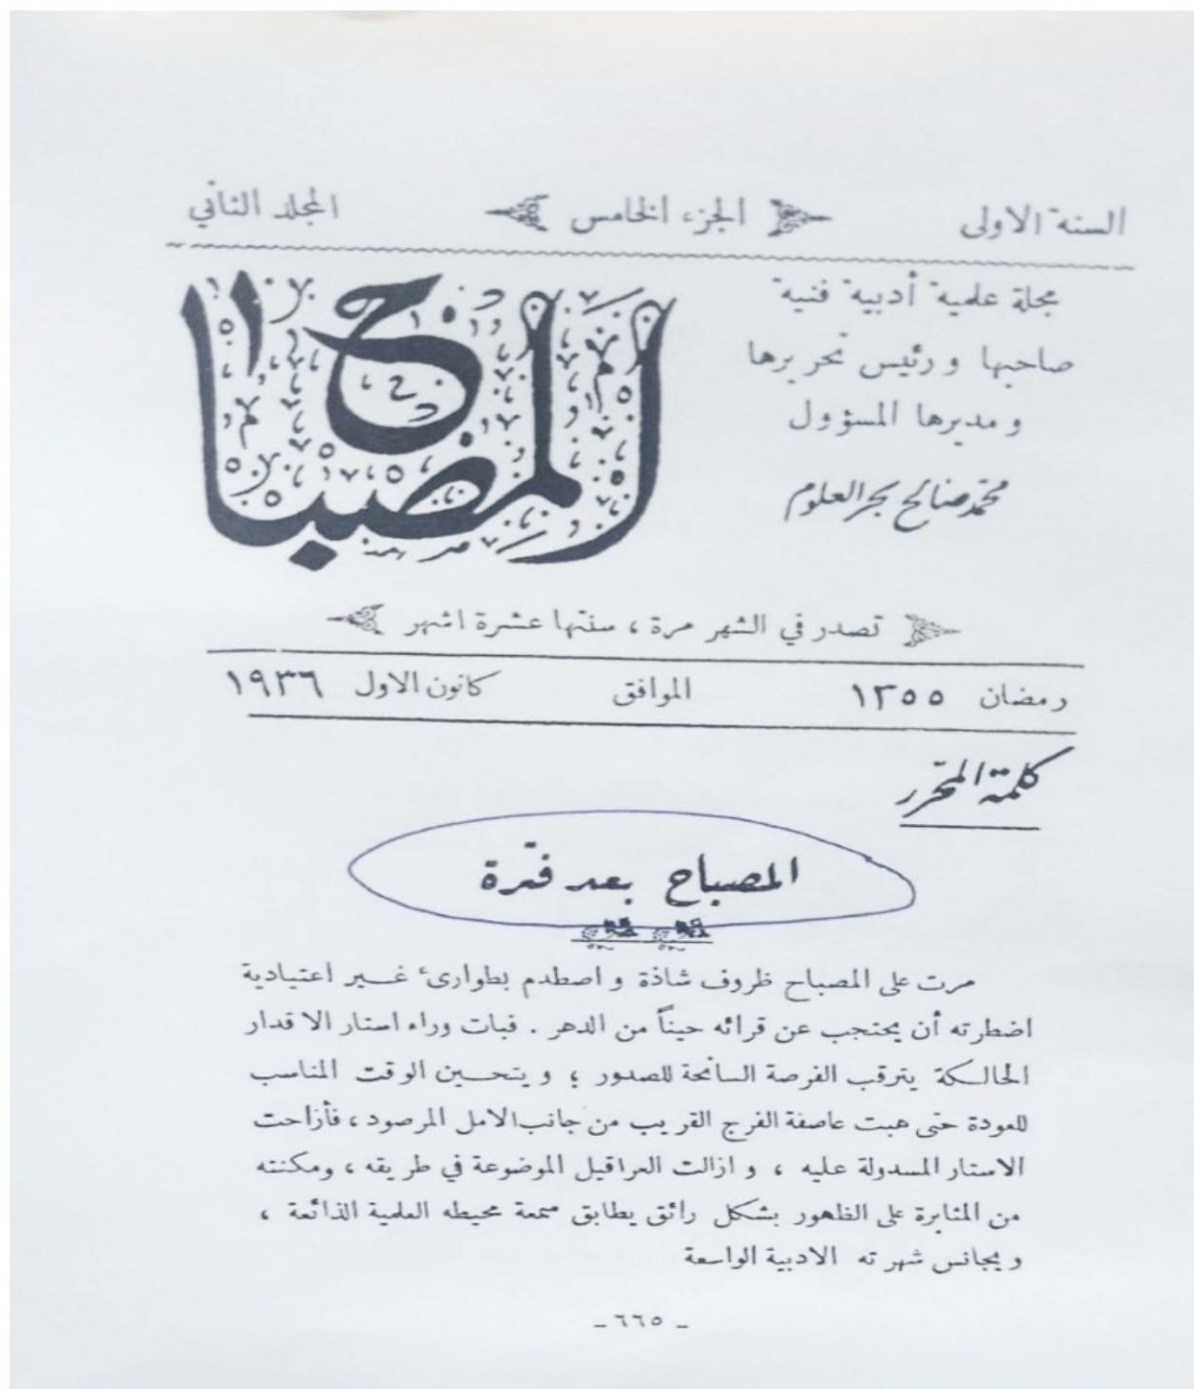 السنة الاولى الجزء الخامس المجلد الثاني
المصباح
مجلة علمية أدبية فنية
صاحبها ورئيس تحريرها
ومديرها المسؤول
محمد صالح بحر العلوم
تصدر في الشهر مرة ، سنتها عشرة اشهر
رمضان ١٣٥٥ الموافق كانون الاول ١٩٣٦
كلمة المحرر
المصباح بعد فترة
مرت على المصباح ظروف شاذة واصطدم بطوارئ غير اعتيادية
اضطرته أن يحتجب عن قرائه حيناً من الدهر . فبات وراء استار الاقدار
الحالكة يترقب الفرصة السانحة للصدور ؛ ويتحين الوقت المناسب
للعودة حتى هبت عاصفة الفرج القريب من جانب الامل المرصود ، فأزاحت
الاستار المسدولة عليه ، وازالت العراقيل الموضوعة في طريقه ، ومكنته
من المثابرة على الظهور بشكل رائق يطابق سمعة محيطه العلمية الذائعة ،
ويجانس شهرته الادبية الواسعة
- ٦٦٥ -